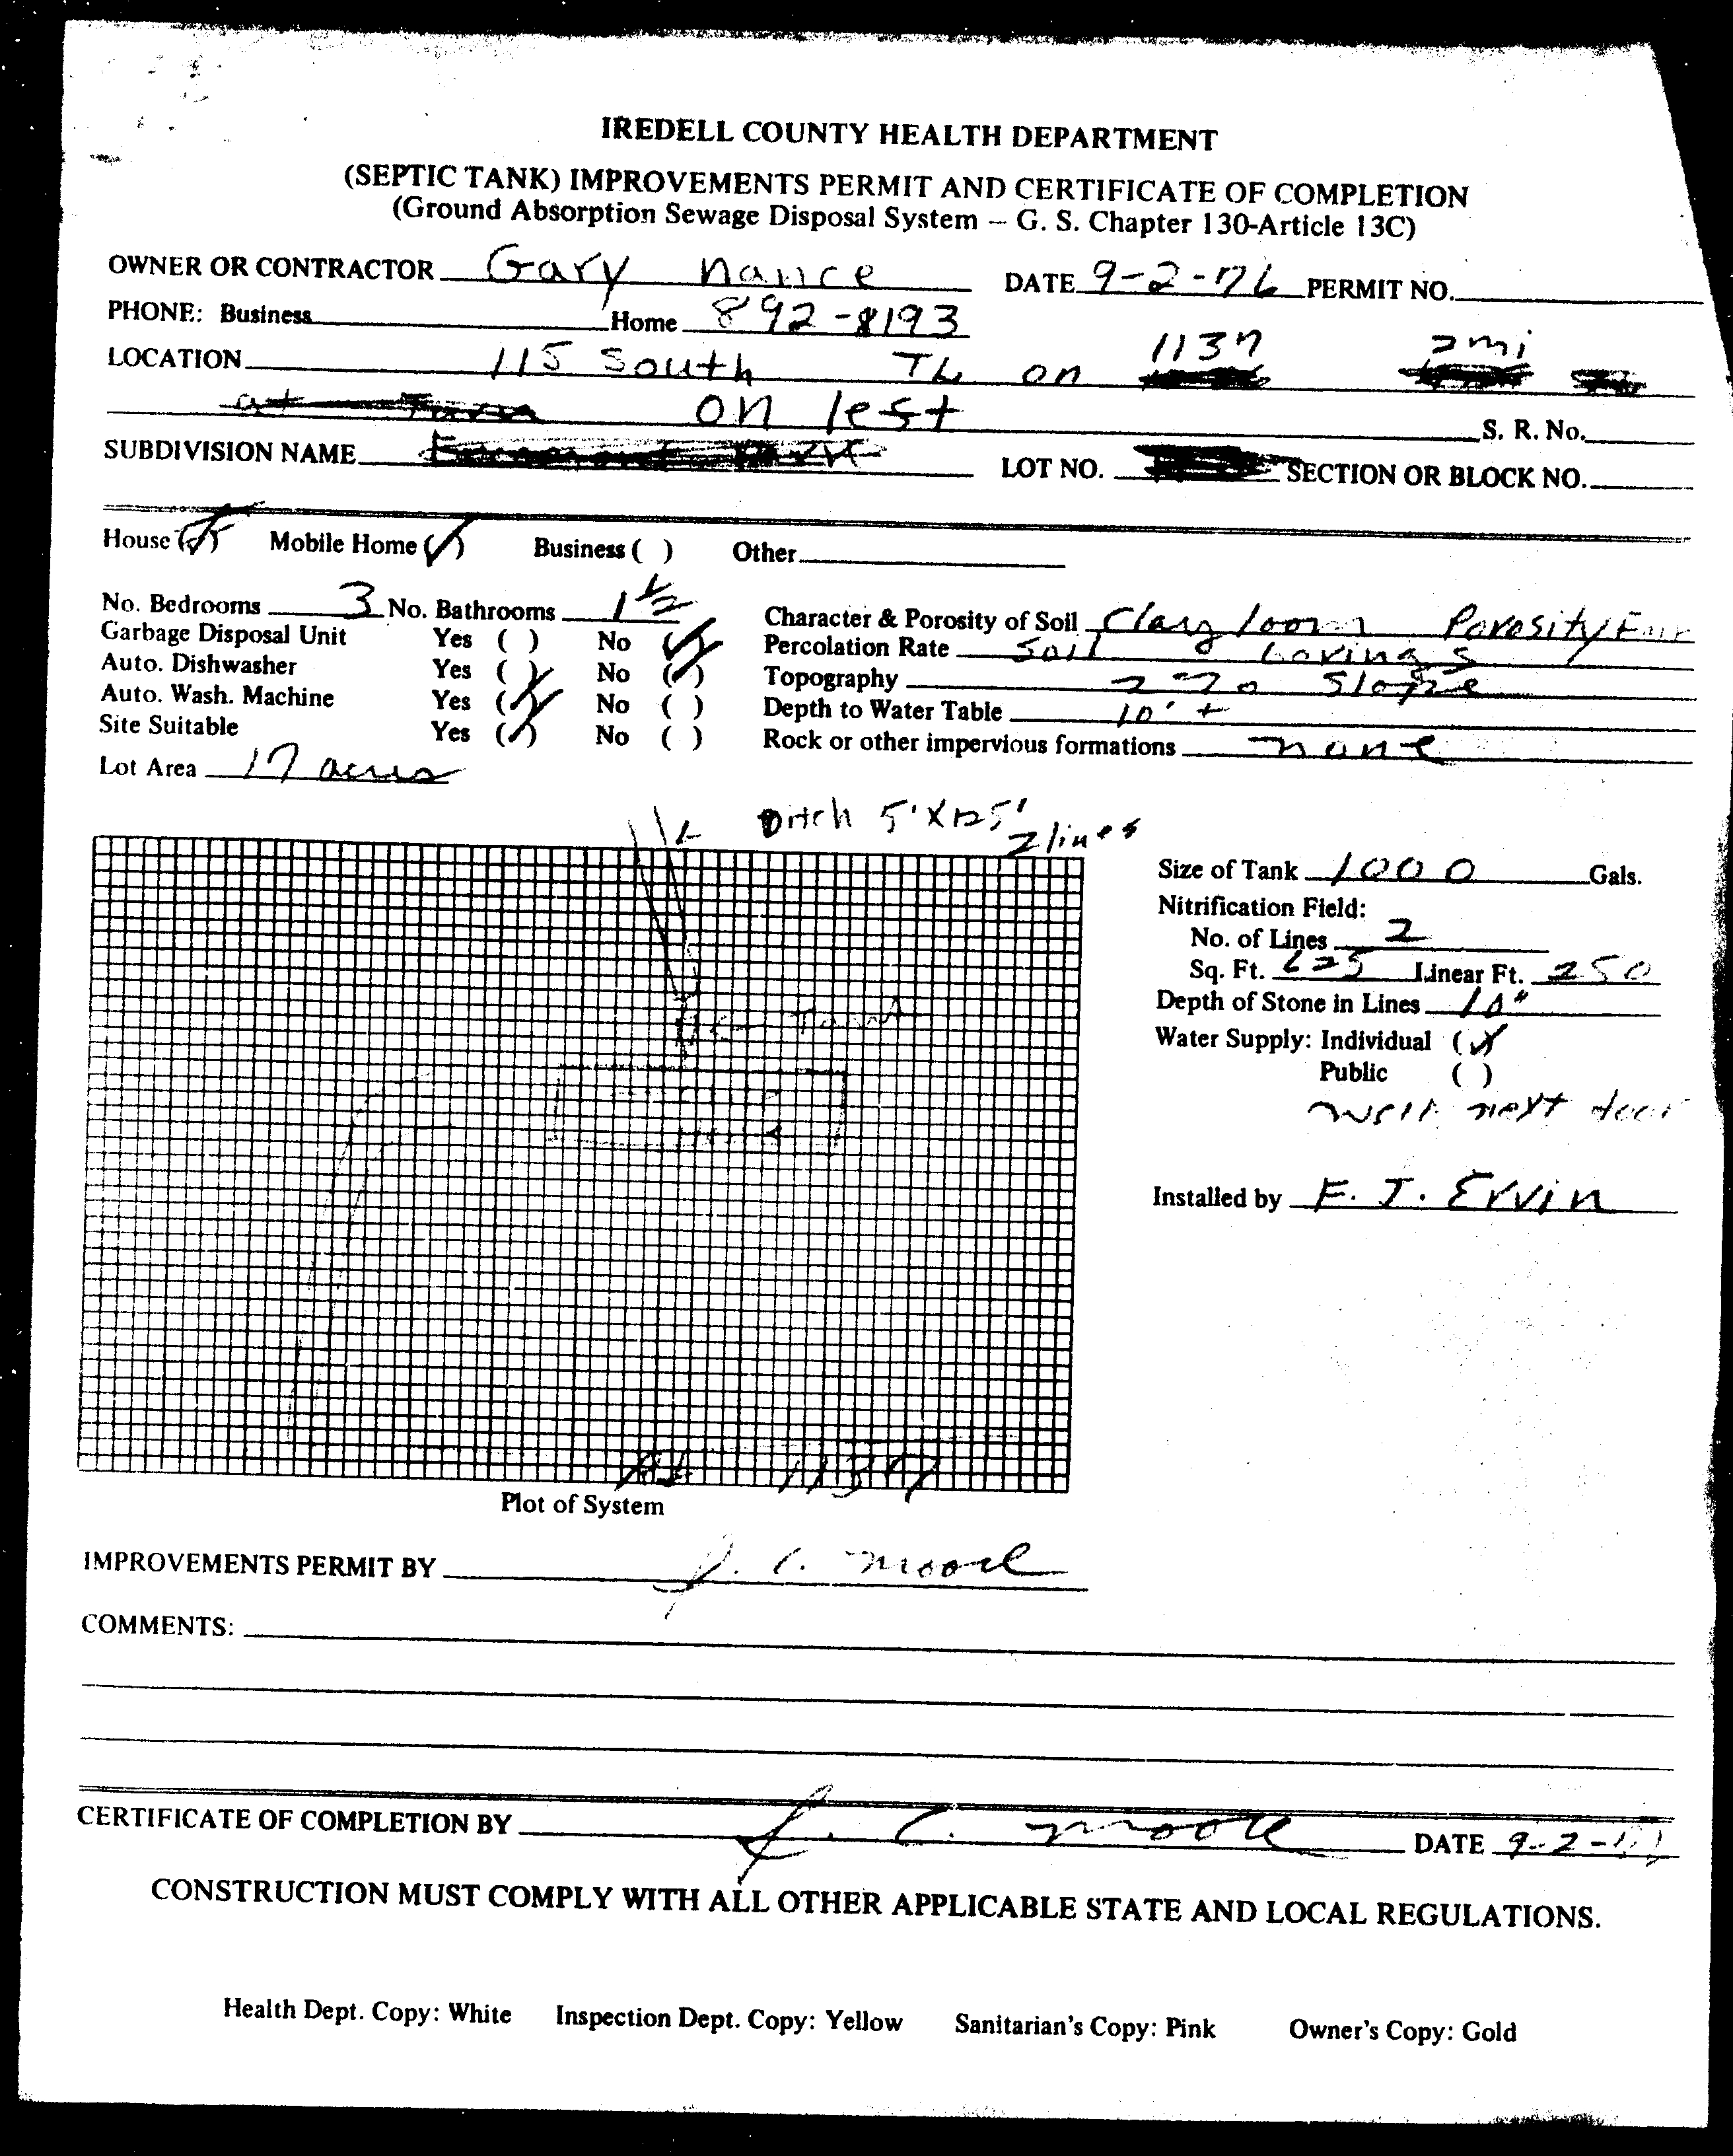 IREDELL COUNTY HEALTH DEPARTMENT
(SEPTIC TANK) IMPROVEMENTS PERMIT AND CERTIFICATE OF COMPLETION
(Ground Absorption Sewage Disposal System – G. S. Chapter 130-Article 13C)
OWNER OR CONTRACTOR Gary Nance DATE 9-2-76 PERMIT NO.
PHONE: Business Home 892-8193
LOCATION 115 South TL on 1137 2mi
on left S. R. No.
SUBDIVISION NAME LOT NO. SECTION OR BLOCK NO.
House ( ) Mobile Home (✓) Business ( ) Other
No. Bedrooms 3 No. Bathrooms 1 1/2 Character & Porosity of Soil Clay loom Porosity Fair
Garbage Disposal Unit Yes ( ) No (✓) Percolation Rate Soil borings
Auto. Dishwasher Yes ( ) No (✓) Topography 2% Slope
Auto. Wash. Machine Yes (✓) No ( ) Depth to Water Table 10' +
Site Suitable Yes (✓) No ( ) Rock or other impervious formations none
Lot Area 17 acres
Ditch 5'X125'
2 lines
Size of Tank 1000 Gals.
Nitrification Field:
No. of Lines 2
Sq. Ft. 625 Linear Ft. 250
Depth of Stone in Lines 10"
Water Supply: Individual (✓)
Public ( )
Well next door
Tank
Installed by F. J. Ervin
1137
Plot of System
IMPROVEMENTS PERMIT BY J. C. Moore
COMMENTS:
CERTIFICATE OF COMPLETION BY J. C. Moore DATE 9-2-
CONSTRUCTION MUST COMPLY WITH ALL OTHER APPLICABLE STATE AND LOCAL REGULATIONS.
Health Dept. Copy: White Inspection Dept. Copy: Yellow Sanitarian's Copy: Pink Owner's Copy: Gold